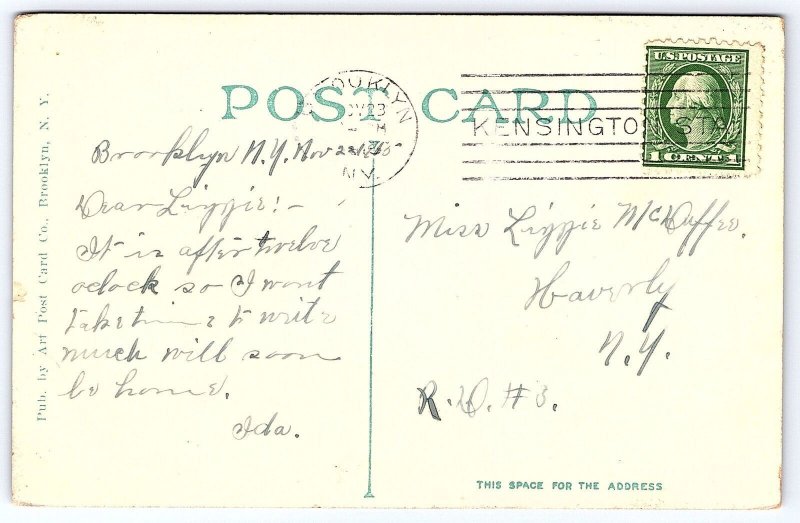 POST CARD
BROOKLYN
NOV 23
N.Y.
KENSINGTON STA
U.S. POSTAGE
1 CENT 1
Brooklyn N.Y. Nov 22
Dear Lizzie! –
It is after twelve
oclock so I wont
take time to write
much will soon
be home.
Ida.
Miss Lizzie McDuffee.
Haverly
N.Y.
R.D. #3.
Pub. by Art Post Card Co., Brooklyn, N. Y.
THIS SPACE FOR THE ADDRESS